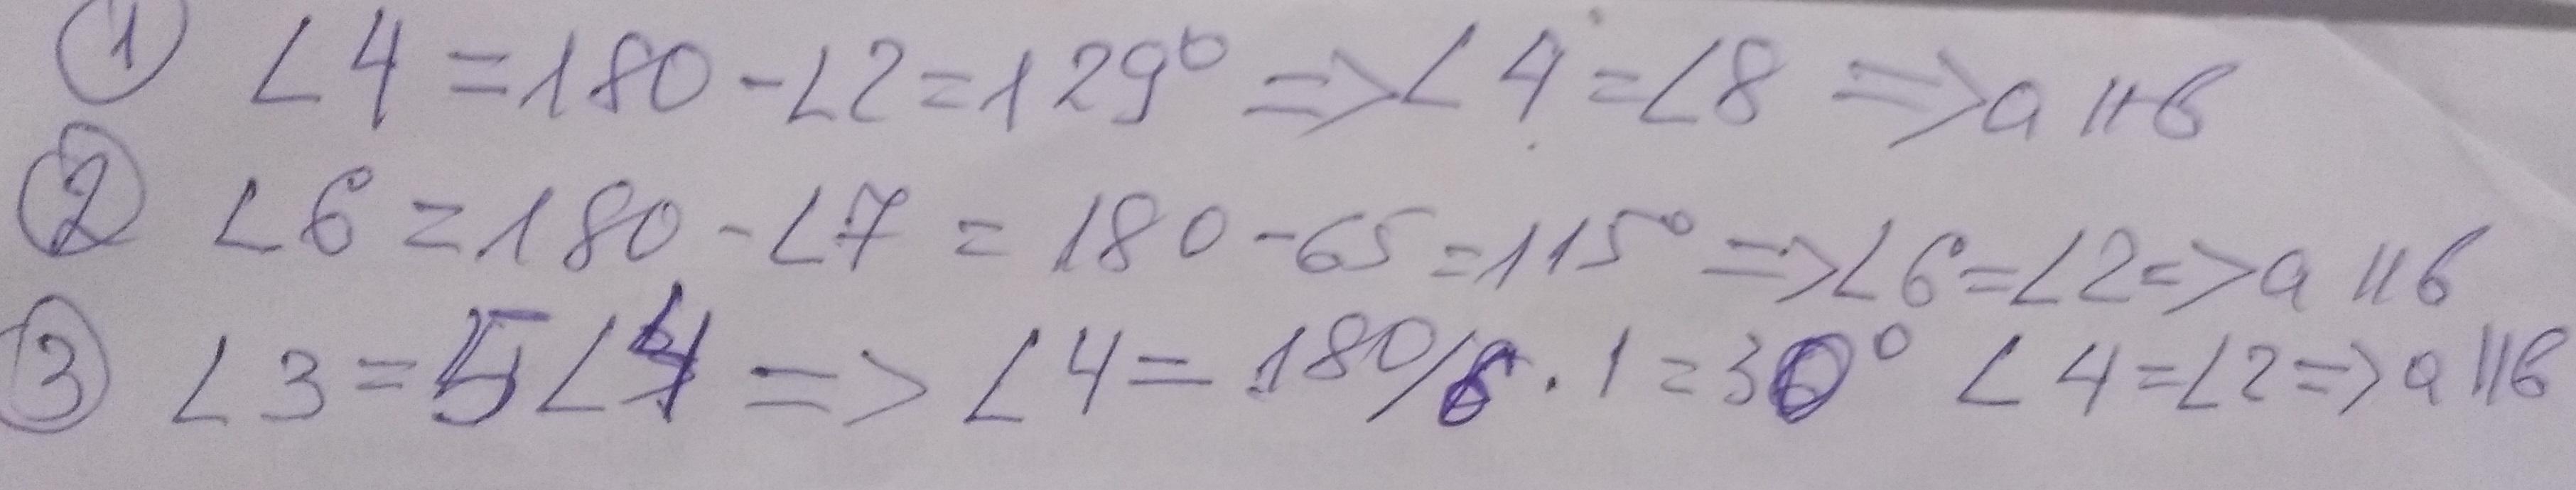 ① ∠4 = 180 - ∠2 = 129° => ∠4 = ∠8 => a || в
② ∠6 = 180 - ∠7 = 180 - 65 = 115° => ∠6 = ∠2 => a || в
③ ∠3 = 5∠4 => ∠4 = 180/6 · 1 = 30° ∠4 = ∠2 => a || в